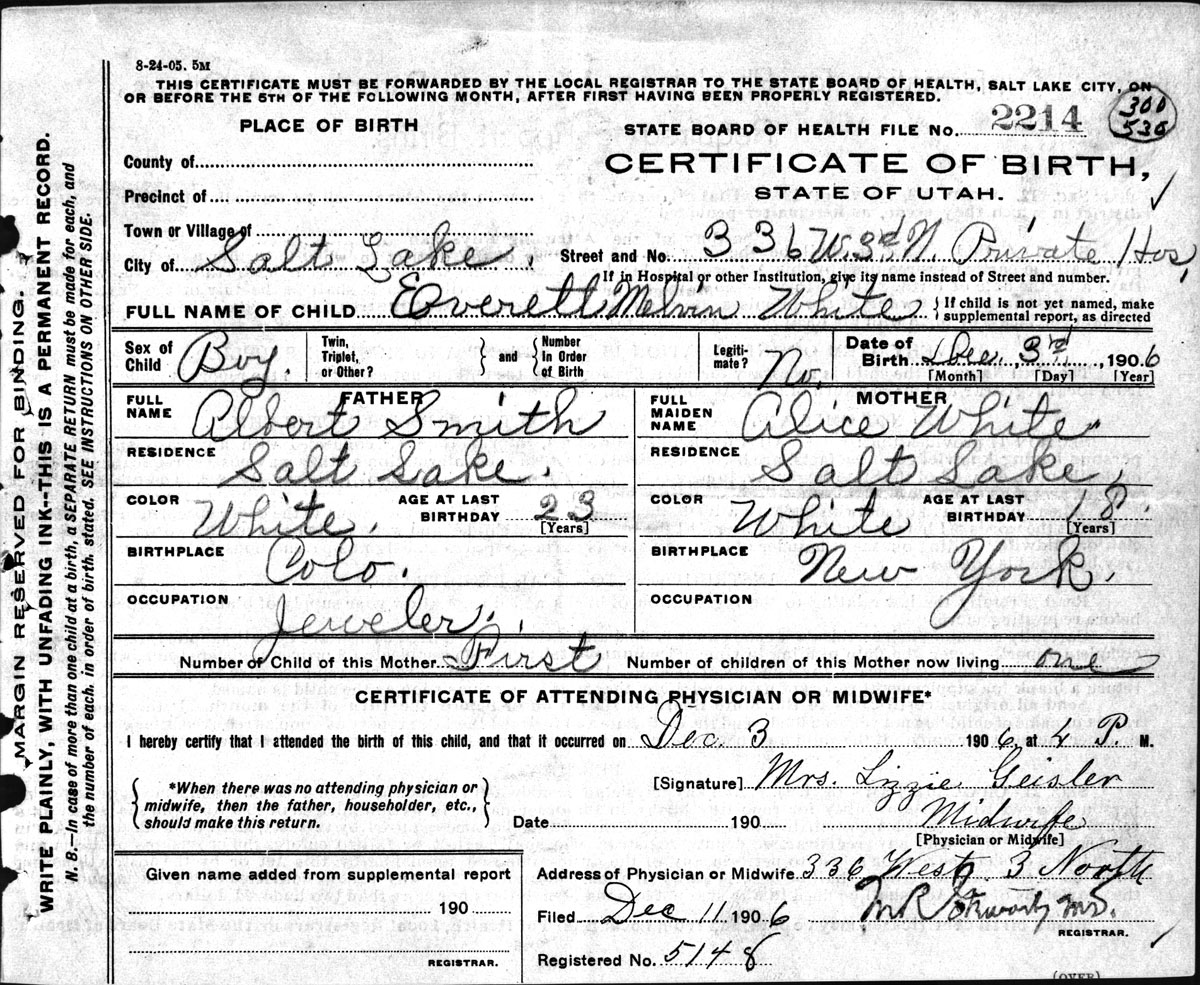 8-24-05. 5M
THIS CERTIFICATE MUST BE FORWARDED BY THE LOCAL REGISTRAR TO THE STATE BOARD OF HEALTH, SALT LAKE CITY, ON
OR BEFORE THE 5TH OF THE FOLLOWING MONTH, AFTER FIRST HAVING BEEN PROPERLY REGISTERED.
300
536
PLACE OF BIRTH
STATE BOARD OF HEALTH FILE No. 2214
CERTIFICATE OF BIRTH,
STATE OF UTAH.
County of
Precinct of
Town or Village of
City of Salt Lake.
Street and No. 336 W. 3d N. Private Hos.
If in Hospital or other Institution, give its name instead of Street and number.
FULL NAME OF CHILD Everett Melvin White
If child is not yet named, make
supplemental report, as directed
Sex of Child Boy.
Twin, Triplet, or Other? and Number In Order of Birth
Legitimate? No.
Date of Birth Dec. 3rd, 1906
[Month] [Day] [Year]
FATHER
FULL NAME Albert Smith
RESIDENCE Salt Lake.
COLOR White. AGE AT LAST BIRTHDAY 23
[Years]
BIRTHPLACE Colo.
OCCUPATION Jeweler.
MOTHER
FULL MAIDEN NAME Alice White.
RESIDENCE Salt Lake.
COLOR White AGE AT LAST BIRTHDAY 18.
[Years]
BIRTHPLACE New York.
OCCUPATION
Number of Child of this Mother First Number of children of this Mother now living one
CERTIFICATE OF ATTENDING PHYSICIAN OR MIDWIFE*
I hereby certify that I attended the birth of this child, and that it occurred on Dec. 3 1906, at 4 P. M.
*When there was no attending physician or
midwife, then the father, householder, etc.,
should make this return.
[Signature] Mrs. Lizzie Geisler
Date 190 Midwife
[Physician or Midwife]
Given name added from supplemental report
190
REGISTRAR.
Address of Physician or Midwife 336 West 3 North
Filed Dec 11 1906
M.D.
REGISTRAR.
Registered No. 5148
(OVER)
MARGIN RESERVED FOR BINDING.
WRITE PLAINLY, WITH UNFADING INK--THIS IS A PERMANENT RECORD.
N. B.—In case of more than one child at a birth, a SEPARATE RETURN must be made for each, and
the number of each, in order of birth, stated. SEE INSTRUCTIONS ON OTHER SIDE.